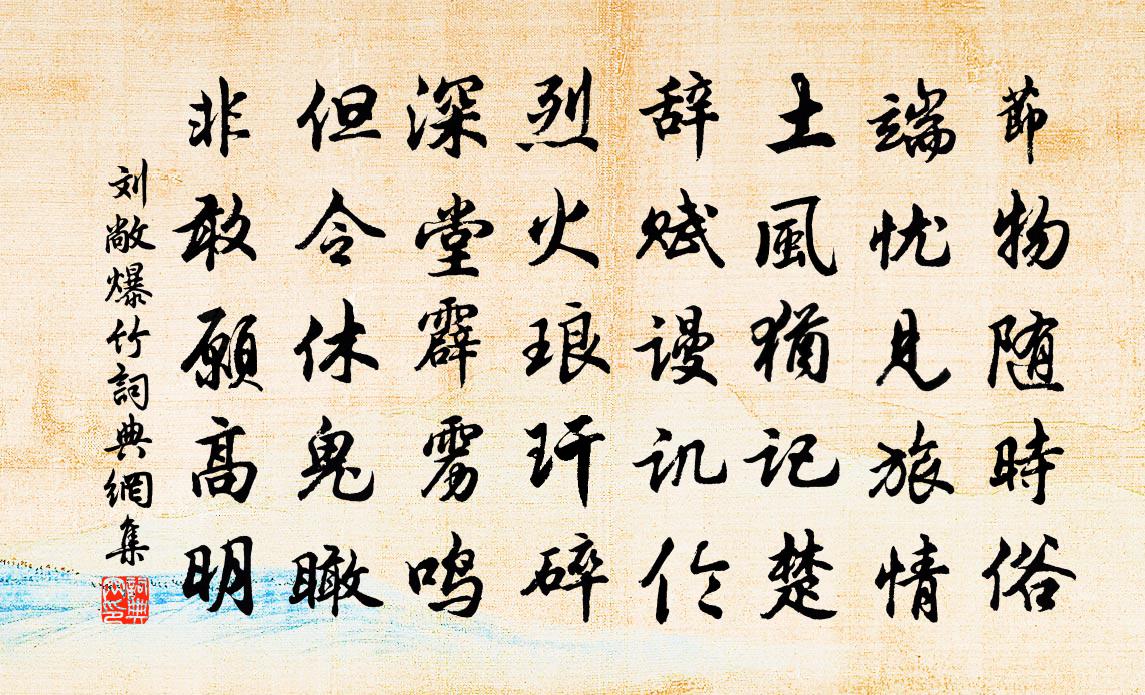 節物随時俗
端忧見旅情
土風猶记楚
辞赋谩讥伧
烈火琅玕碎
深堂霹雳鸣
但令休鬼瞰
非敢願高明
刘敞爆竹詞典網集